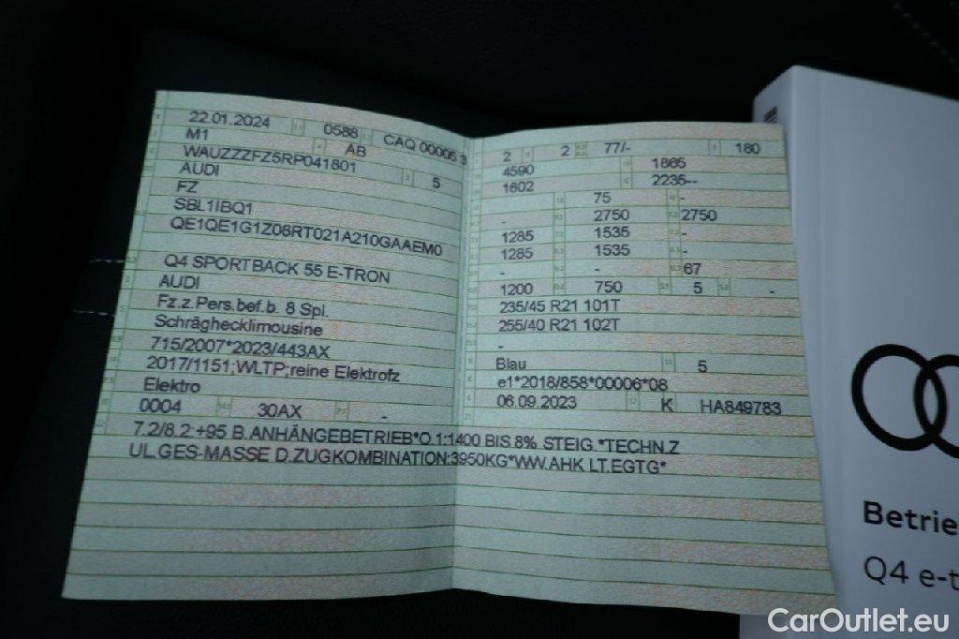 22.01.2024 0588 CAQ 00005 3
M1 AB
WAUZZZFZ5RP041801 5
AUDI
FZ
SBL1IBQ1
QE1QE1G1Z08RT021A210GAAEM0
Q4 SPORTBACK 55 E-TRON
AUDI
Fz.z.Pers.bef.b. 8 Spl.
Schräghecklimousine
715/2007*2023/443AX
2017/1151;WLTP;reine Elektrofz
Elektro
0004 30AX -
2 2 77/- 180
4590 1865
1602 2235--
75 -
- 2750 2750
1285 1535 -
1285 1535 -
- - 67
1200 750 5 -
235/45 R21 101T
255/40 R21 102T
-
Blau 5
e1*2018/858*00006*08
06.09.2023 K HA849783
7.2/8.2:+95 B.ANHÄNGEBETRIEB*O.1:1400 BIS 8% STEIG.*TECHN.Z
UL.GES-MASSE D.ZUGKOMBINATION:3950KG*WW.AHK LT.EGTG*
Betrie
Q4 e-t
CarOutlet.eu